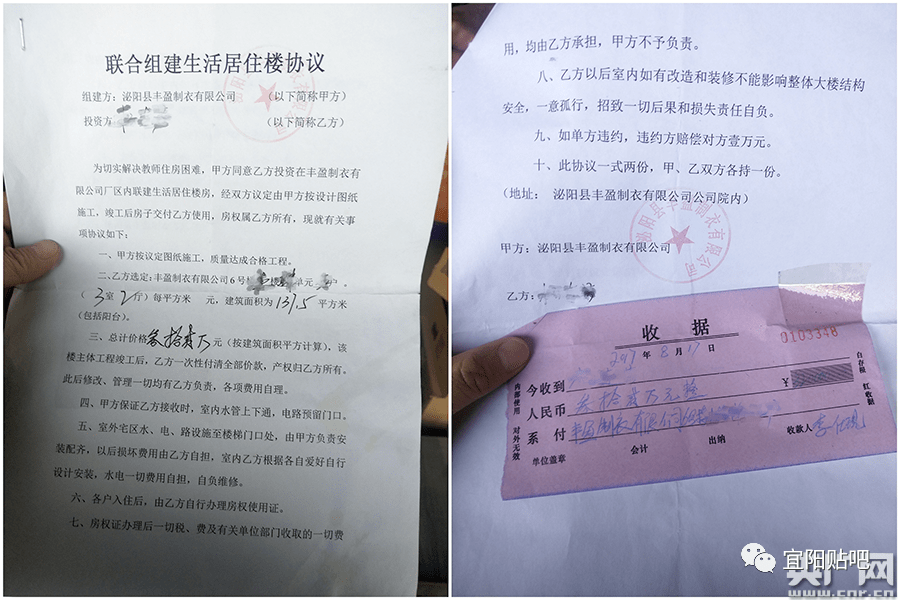 联合组建生活居住楼协议
组建方：泌阳县丰盈制衣有限公司 （以下简称甲方）
投资方 （以下简称乙方）
为切实解决教师住房困难，甲方同意乙方投资在丰盈制衣有
限公司厂区内联建生活居住楼房，经双方议定由甲方按设计图纸
施工，竣工后房子交付乙方使用，房权属乙方所有，现就有关事
项协议如下：
一、甲方按议定图纸施工，质量达成合格工程。
二、乙方选定：丰盈制衣有限公司6号 单元 户
（3室2厅）每平方米 元，建筑面积为 137.5 平方米
（包括阳台）。
三、总计价格 叁拾贰万元（按建筑面积平方计算），该
楼主体工程竣工后，乙方一次性付清全部价款，产权归乙方所有。
此后修改、管理一切均有乙方负责，各项费用自理。
四、甲方保证乙方接收时，室内水管上下通，电路预留门口。
五、室外宅区水、电、路设施至楼梯门口处，由甲方负责安
装配齐，以后损坏费用由乙方自担，室内乙方根据各自爱好自行
设计安装，水电一切费用自担，自负维修。
六、各户入住后，由乙方自行办理房权使用证。
七、房权证办理后一切税、费及有关单位部门收取的一切费
用，均由乙方承担，甲方不予负责。
八、乙方以后室内如有改造和装修不能影响整体大楼结构
安全，一意孤行，招致一切后果和损失责任自负。
九、如单方违约，违约方赔偿对方壹万元。
十、此协议一式两份，甲、乙双方各持一份。
（地址： 泌阳县丰盈制衣有限公司公司院内）
泌阳县丰盈制衣有限公司
甲方：泌阳县丰盈制衣有限公司
乙方：
收 据
0103348
年 8 月 17 日
今收到 ¥
人民币 叁拾贰万元整
系 付
单位盖章 会计 出纳 收款人
内部使用 对外无效
白存根 红收据
宜阳贴吧
央广网
www.cnr.cn